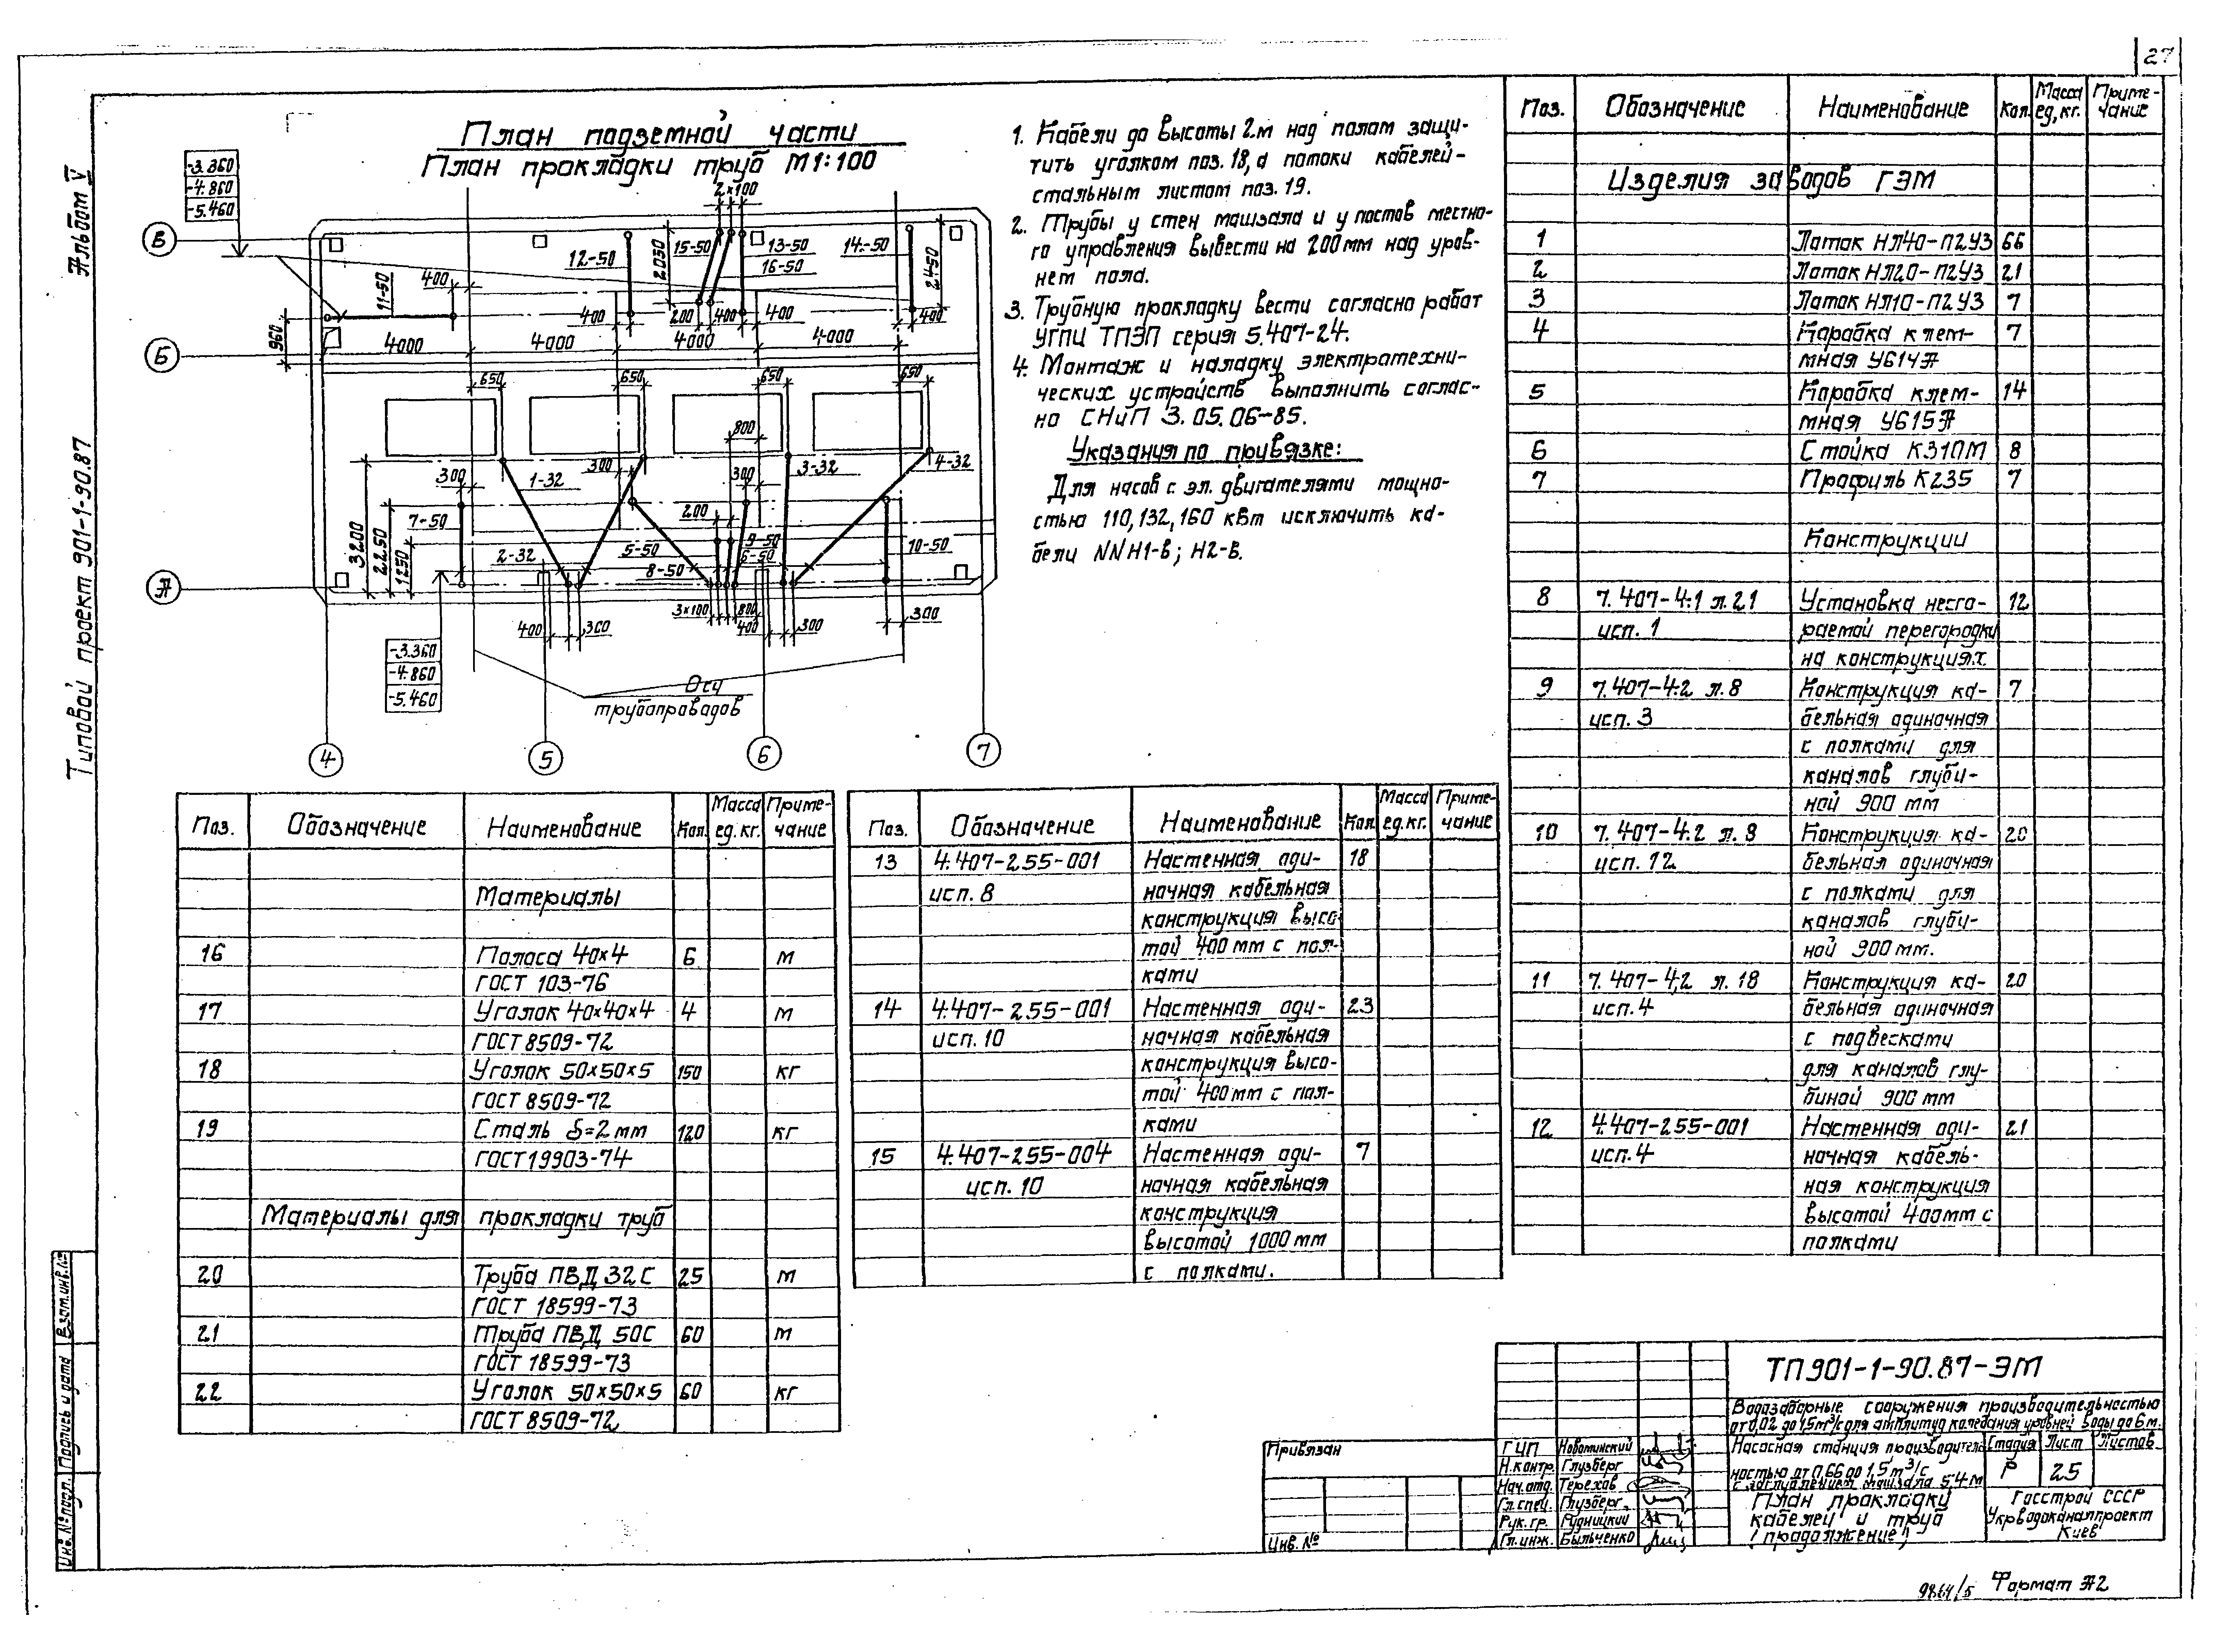 27
Альбом V
Типовой проект 901-1-90.87
План подземной части
План прокладки труб М1:100
-3.360
-4.860
-5.460
В
Б
А
2×100
12-50
2050
15-50
13-50
16-50
14-50
2450
11-50
400
400
200
400
400
400
960
4000
4000
4000
4000
650
650
650
650
800
300
1-32
300
300
3-32
4-32
3200
2250
1250
7-50
200
2-32
5-50
9-50
6-50
8-50
10-50
3×100
800
400
300
400
300
300
-3.360
-4.860
-5.460
Оси
трубопроводов
4
5
6
7
1. Кабели до высоты 2м над полом защи-
тить уголком поз. 18, а потоки кабелей-
стальным листом поз. 19.
2. Трубы у стен машзала и у постов местно-
го управления вывести на 200мм над уров-
нем пола.
3. Трубную прокладку вести согласно работ
УГПИ ТПЭП серия 5.407-24.
4. Монтаж и наладку электротехни-
ческих устройств выполнить соглас-
но СНиП 3.05.06-85.
Указания по привязке:
Для насов с эл. двигателями мощно-
стью 110, 132, 160 кВт исключить ка-
бели NNН1-в; Н2-в.
Поз. Обозначение Наименование Кол. Масса ед, кг. Приме-чание
Изделия заводов ГЭМ
1 Лоток НЛ40-П2У3 66
2 Лоток НЛ20-П2У3 21
3 Лоток НЛ10-П2У3 7
4 Коробка клем- 7
мная У614А
5 Коробка клем- 14
мная У615А
6 Стойка К310М 8
7 Профиль К235 7
Конструкции
8 7.407-4.1 л.21 Установка несго- 12
исп. 1 раемой перегородки
на конструкциях.
9 7.407-4.2 л.8 Конструкция ка- 7
исп. 3 бельная одиночная
с полками для
каналов глуби-
ной 900 мм
10 7.407-4.2 л.8 Конструкция ка- 20
исп. 12 бельная одиночная
с полками для
каналов глуби-
ной 900 мм.
11 7.407-4.2 л. 18 Конструкция ка- 20
исп. 4 бельная одиночная
с подвесками
для каналов глу-
биной 900 мм
12 4.407-255-001 Настенная оди- 21
исп. 4 ночная кабель-
ная конструкция
высотой 400мм с
полками
Поз. Обозначение Наименование Кол. Масса ед. кг. Приме-чание
Материалы
16 Полоса 40×4 6 м
ГОСТ 103-76
17 Уголок 40×40×4 4 м
ГОСТ 8509-72
18 Уголок 50×50×5 150 кг
ГОСТ 8509-72
19 Сталь δ=2мм 120 кг
ГОСТ 19903-74
Материалы для прокладки труб
20 Труба ПВД 32С 25 м
ГОСТ 18599-73
21 Труба ПВД 50С 60 м
ГОСТ 18599-73
22 Уголок 50×50×5 60 кг
ГОСТ 8509-72
Поз. Обозначение Наименование Кол. Масса ед. кг. Приме-чание
13 4.407-255-001 Настенная оди- 18
исп. 8 ночная кабельная
конструкция высо
той 400мм с пол-
ками
14 4.407-255-001 Настенная оди- 23
исп. 10 ночная кабельная
конструкция высо-
той 400мм с пол-
ками
15 4.407-255-004 Настенная оди- 7
исп. 10 ночная кабельная
конструкция
высотой 1000мм
с полками.
Взам.инв.№
Подпись и дата
Инв.№подл.
Привязан
Инв. №
ГИП Новоминский
Н.контр. Глузберг
Нач.отд. Терехов
Гл.спец. Глузберг
Рук.гр. Рудницкий
Гл.инж. Быльченко
ТП901-1-90.87-ЭМ
Водозаборные сооружения производительностью
от 0,02 до 1,5м³/с для амплитуд колебания уровней воды до 6м.
Насосная станция производитель-
ностью от 0,66 до 1,5м³/с
с заглублением машзала 5,4м
Стадия Лист Листов
Р 25
План прокладки
кабелей и труб
(продолжение)
Госстрой СССР
Укрводоканалпроект
Киев
9864/5 Формат А2